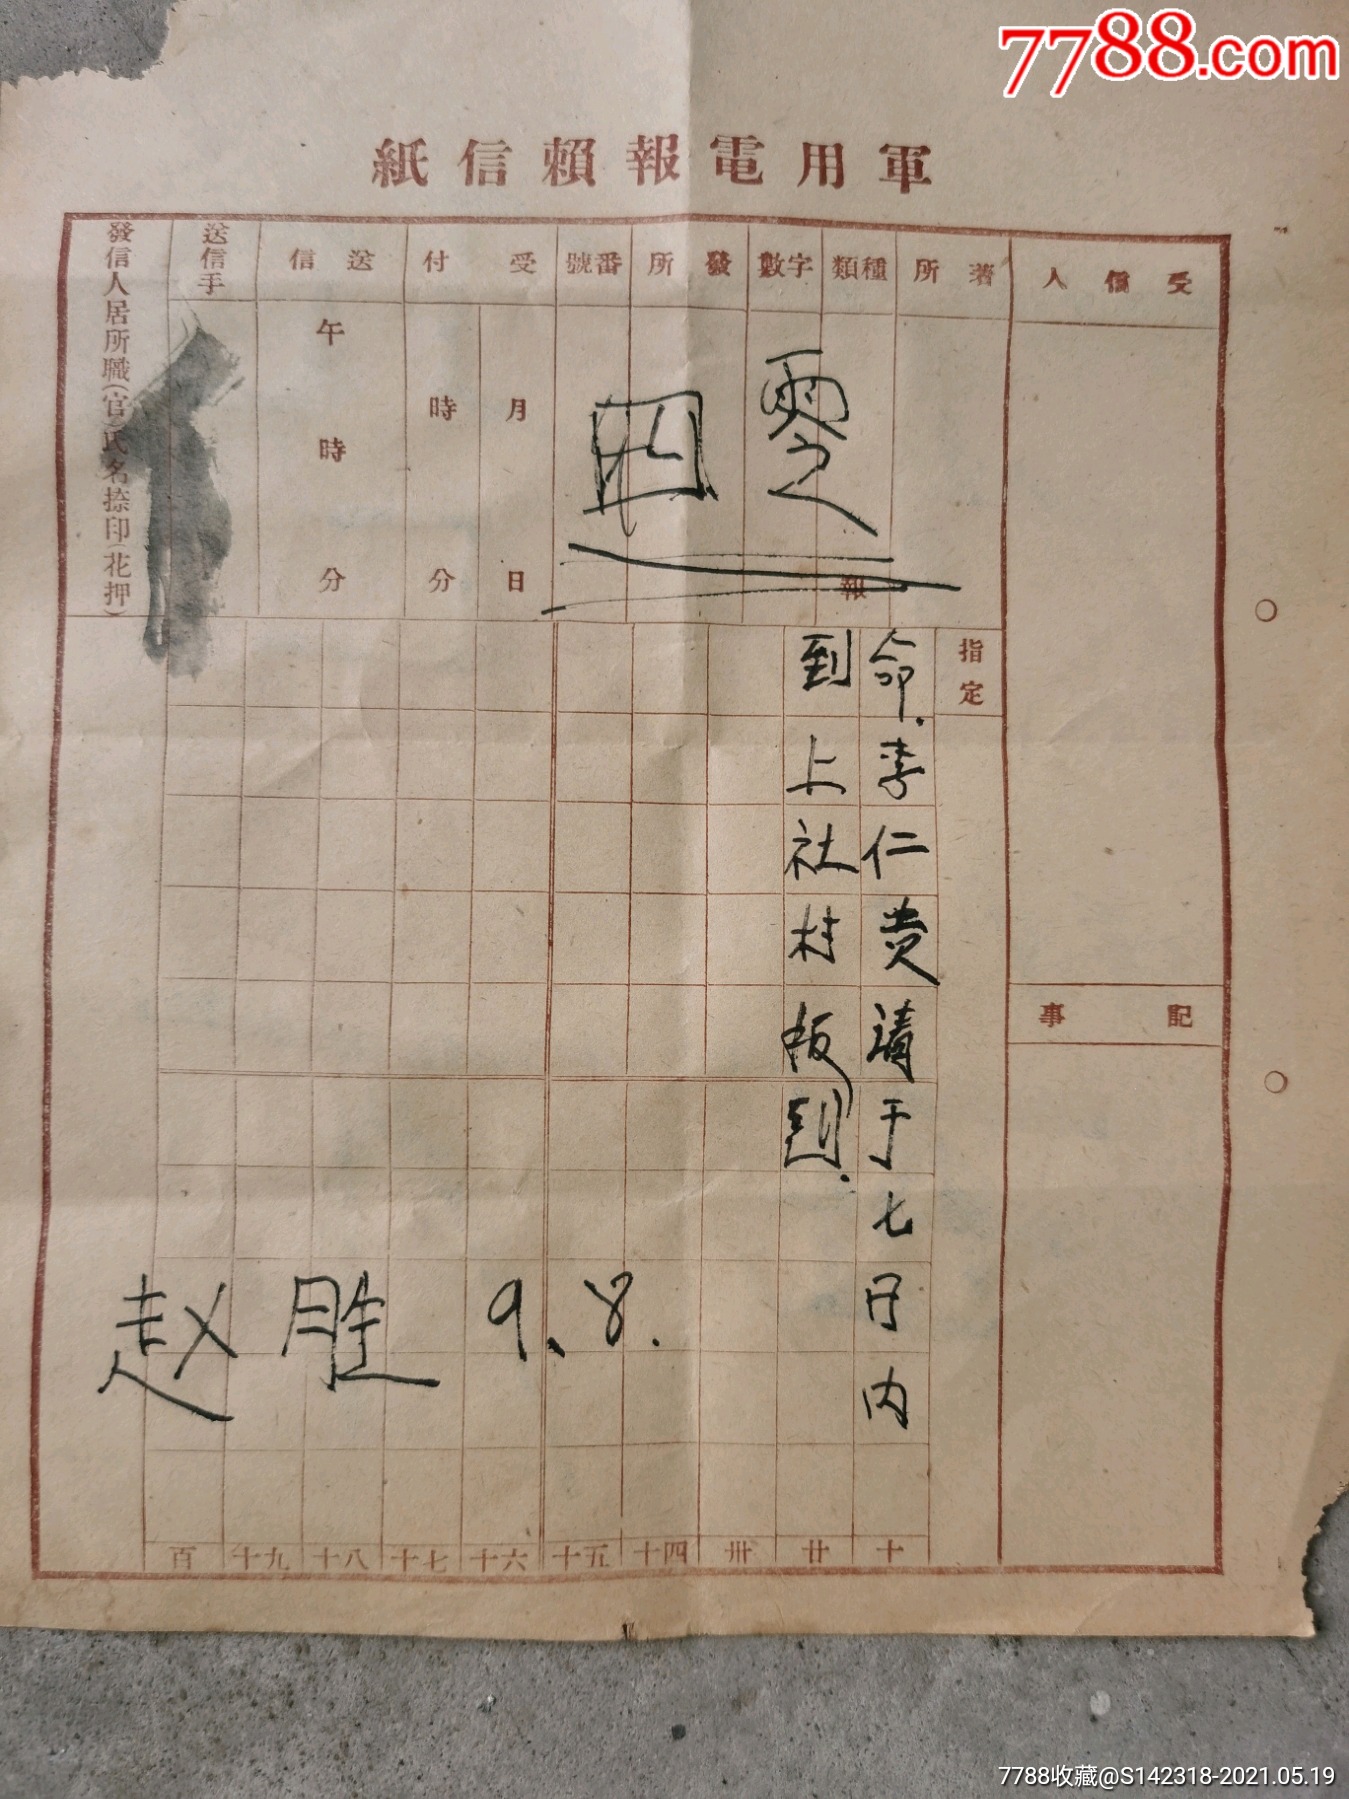 7788.com
紙信頼報電用軍
受信人
著所
種類
字數
發所
番號
受付
送信
送信手
發信人居所職(官)氏名捺印(花押)
月日
時分
午時分
報
指定
命.李仁贵请于七日内
到上社村 报到.
赵胜 9.8.
記事
十
廿
卅
四十
五十
六十
七十
八十
九十
百
7788收藏@S142318-2021.05.19